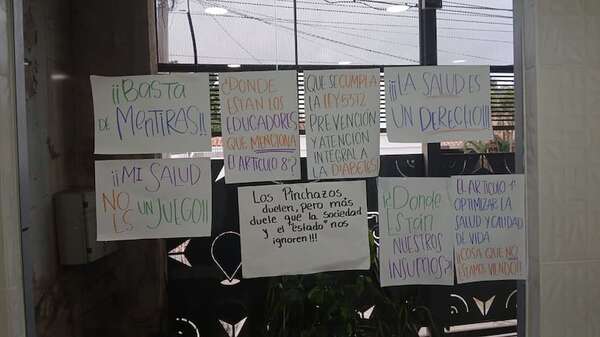 ¡¡Basta
DE MENTIRAS!!
¿DONDE
ESTAN LOS
EDUCADORES,
QUE MENCIONA
EL ARTICULO 8°?
QUE SE CUMPLA
LA LEY 5372
PREVENCIÓN
Y ATENCIÓN
INTEGRAL A
LA DIABETES
¡¡¡LA SALUD ES
UN DERECHO!!!
¡¡MI SALUD
NO ES
UN JUEGO!!
Los Pinchazos
duelen, pero más
duele que la sociedad
y el "estado" nos
ignoren!!!
¿¡Donde
ESTÁN
NUESTROS
INSUMOS?!
EL ARTICULO 1°
OPTIMIZAR LA
SALUD Y CALIDAD
DE VIDA
¡¡COSA QUE NO
ESTAMOS VIENDO!!